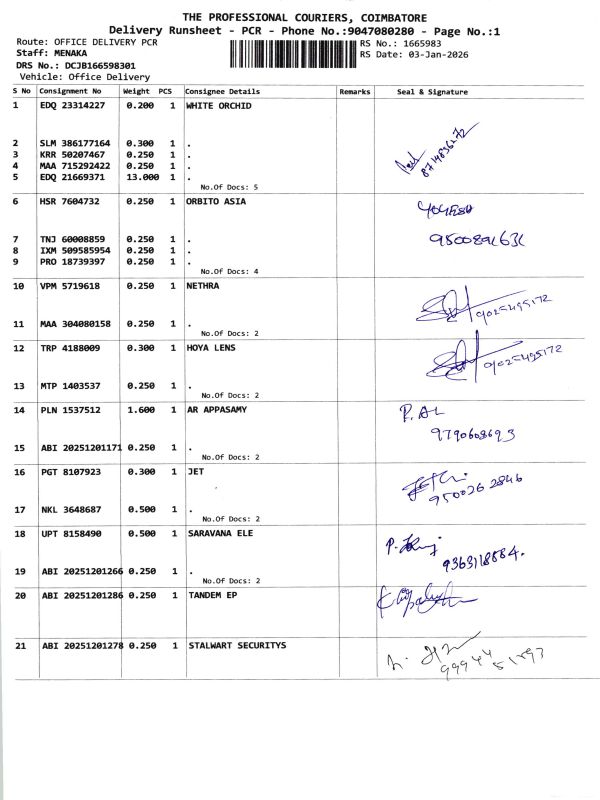 THE PROFESSIONAL COURIERS, COIMBATORE
Delivery Runsheet - PCR - Phone No.:9047080280 - Page No.:1
Route: OFFICE DELIVERY PCR
RS No.: 1665983
Staff: MENAKA
RS Date: 03-Jan-2026
DRS No.: DCJB166598301
Vehicle: Office Delivery
S No Consignment No Weight PCS Consignee Details Remarks Seal & Signature
1 EDQ 23314227 0.200 1 WHITE ORCHID
2 SLM 386177164 0.300 1 .
3 KRR 50207467 0.250 1 .
4 MAA 715292422 0.250 1 .
5 EDQ 21669371 13.000 1 .
No.Of Docs: 5
6 HSR 7604732 0.250 1 ORBITO ASIA
7 TNJ 60008859 0.250 1 .
9500891631
8 IXM 509585954 0.250 1 .
9 PRO 18739397 0.250 1 .
No.Of Docs: 4
10 VPM 5719618 0.250 1 NETHRA
9025495172
11 MAA 304080158 0.250 1 .
No.Of Docs: 2
12 TRP 4188009 0.300 1 HOYA LENS
9025495172
13 MTP 1403537 0.250 1 .
No.Of Docs: 2
14 PLN 1537512 1.600 1 AR APPASAMY
9790608693
15 ABI 20251201171 0.250 1 .
No.Of Docs: 2
16 PGT 8107923 0.300 1 JET
9500262846
17 NKL 3648687 0.500 1 .
No.Of Docs: 2
18 UPT 8158490 0.500 1 SARAVANA ELE
9363118884.
19 ABI 20251201266 0.250 1 .
No.Of Docs: 2
20 ABI 20251201286 0.250 1 TANDEM EP
21 ABI 20251201278 0.250 1 STALWART SECURITYS